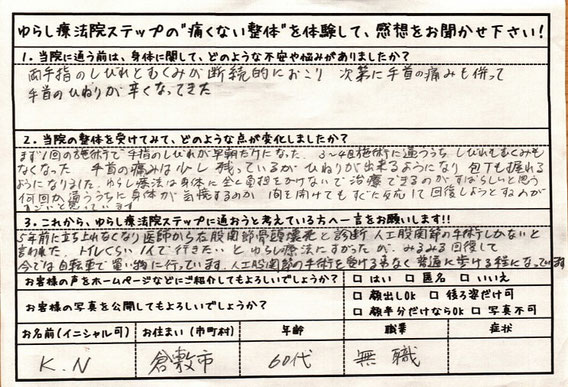 ゆらし療法院ステップの"痛くない整体"を体験して、感想をお聞かせ下さい!
1. 当院に通う前は、身体に関して、どのような不安や悩みがありましたか?
両手指のしびれとむくみが断続的におこり 次第に手首の痛みも併って
手首のひねりが辛くなってきた
2. 当院の整体を受けてみて、どのような点が変化しましたか?
まず1回の施術で手指のしびれが早朝だけになった。3〜4回施術に通ううち しびれもむくみも
なくなった 手首の痛みは少し残っているがひねりが出来るようになり 包丁も握れる
ようになりました。ゆらし療法は身体に全く負担をかけないで治療できるのがすばらしいと思う
何回か通ううちに身体が
3. これから、ゆらし療法院ステップに通おうと考えている方へ一言をお願いします!!
5年前に立ち上れなくなり医師から左股関節骨頭壊死と診断 人工股関節の手術しかないと
言われた。トイレくらい1人で行きたい、とゆらし療法にすがったが、みるみる回復して
今では自転車で買い物に行っています。人工股関節の手術を受ける事なく普通に歩ける様になっています
お客様の声をホームページなどにご紹介してもよろしいでしょうか? □ はい □ 匿名 □ いいえ
お客様の写真を公開してもよろしいでしょうか? □ 顔出しOK □ 後ろ姿だけ可
□ 顔半分だけならOK □ 写真不可
お名前(イニシャル可) お住まい(市町村) 年齢 職業 症状
K.N 倉敷市 60代 無職